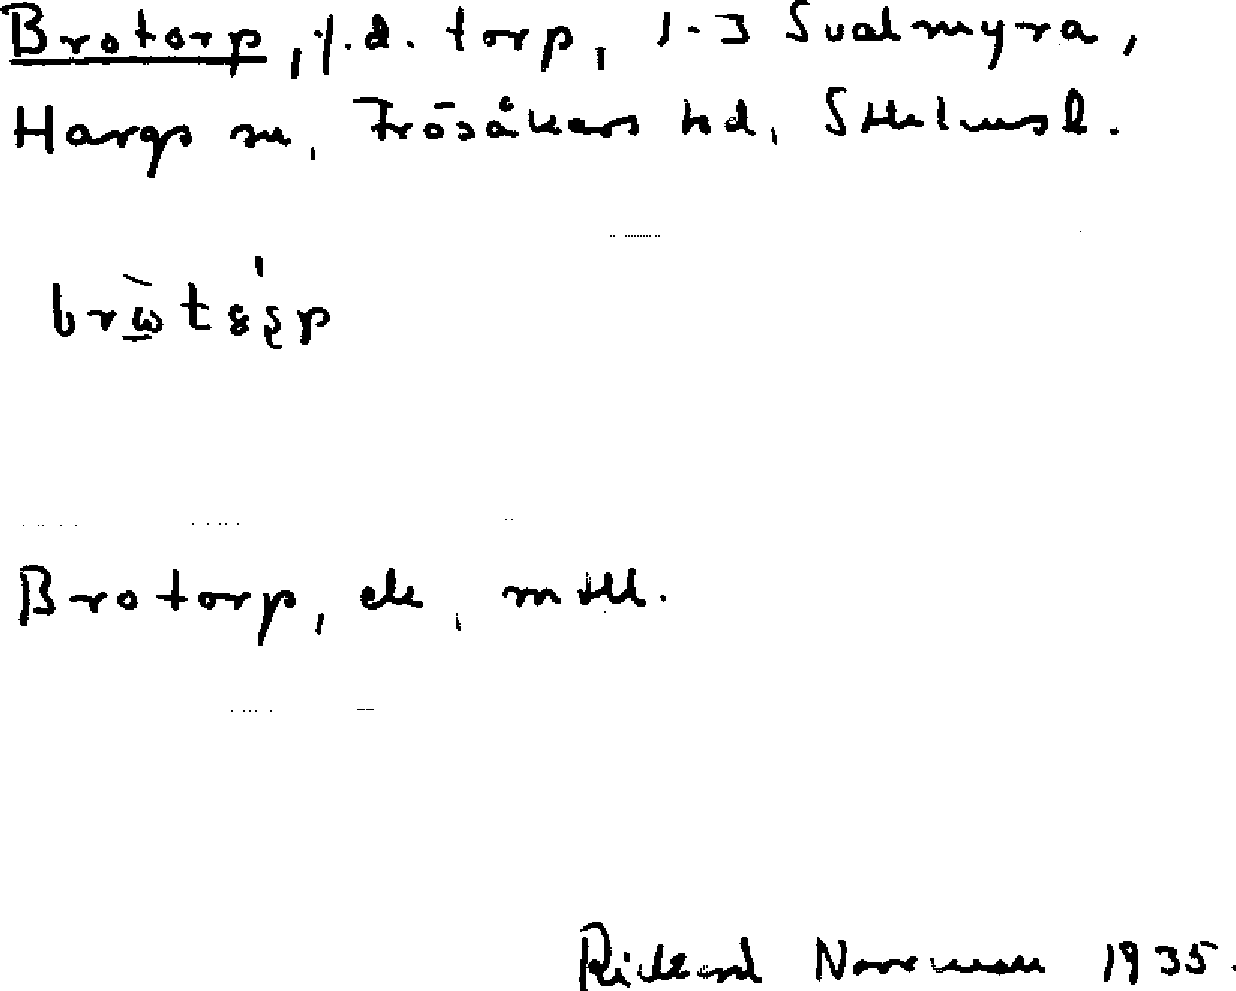 Brotorp, f.d. torp, 1-3 Svalmyra,
Hargs sn, Frösåkers hd, Sthlmsl.
Brotorp, ek, mtll.
Rickard Norrman 1935.